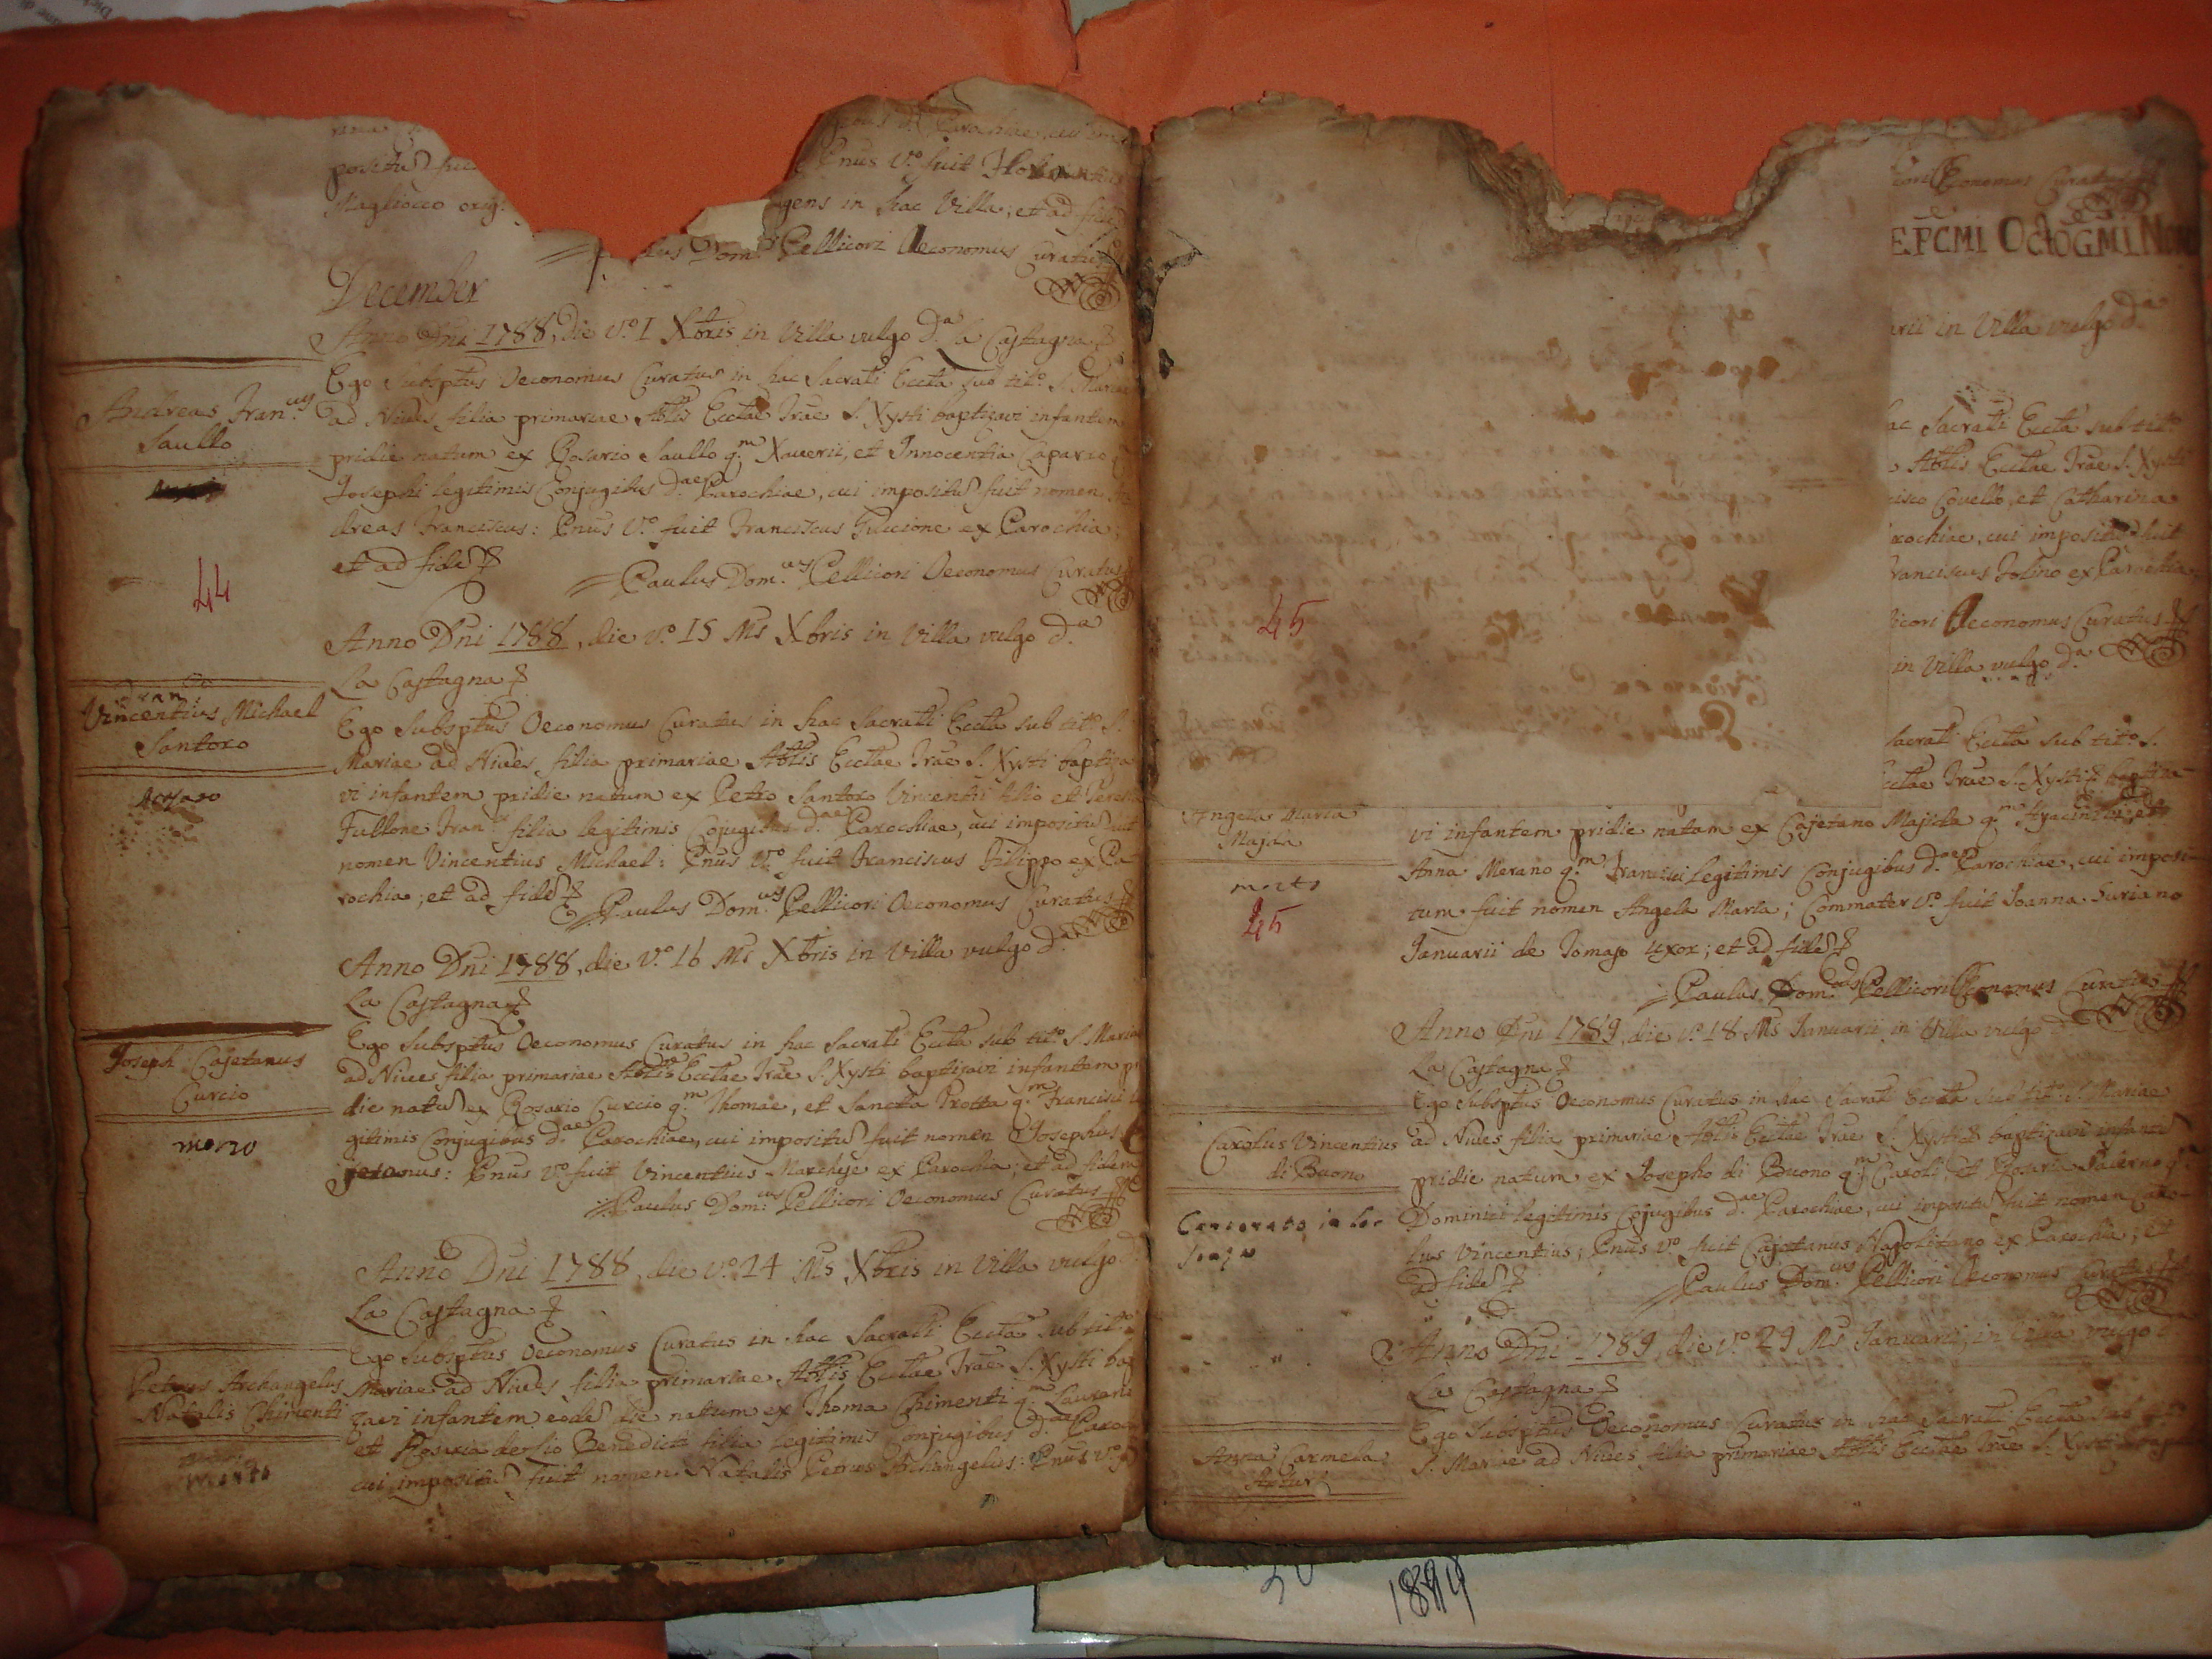 positũ fui
Magliocco orig:
Parochiae, cui im
Pnus Vº fuit
gens in hac Villa; et ad fid
Dom.us Pellicori Oeconomus Curatus
December
Anno Dni 1788, die vº 1 Xbris in Villa vulgo d.a a Castagna
Andreas Fran.cus
Saullo
44
Ego Subsptus Oeconomus Curatus in hac Sacrati Eccta sub titº S. Mariae
ad Nives filia primariae Abtis Ecctae Irae S. Xysti baptizavi infantem
pridie natum ex Rosario Saullo q.m Xaverii, et Innocentia Caparro
Josephi legitimis Conjugibus d.ae Parochiae, cui impositũ fuit nomen
dreas Franciscus: Pnus Vº fuit Franciscus Fuccione ex Parochia;
et ad fidẽ
Paulus Dom.us Pellicori Oeconomus Curatus
Anno Dni 1788, die vº 15 Ms Xbris in Villa vulgo d.a
La Castagna
Vincentius Michael
Santoro
Ego Subsptus Oeconomus Curatus in hac Sacrati Eccta sub titº S.
Mariae ad Nives filia primariae Abtis Ecctae Irae S. Xysti baptiza
vi infantem pridie natum ex Petro Santoro Vincentii filio et Teresia
Fullone Fran.ci filia legitimis Cojugibus d.ae Parochiae, cui impositũ fuit
nomen Vincentius Michael: Pnus Vº fuit Franciscus Filippo ex Pa
rochia; et ad fidẽ
Paulus Dom.us Pellicori Oeconomus Curatus
Anno Dni 1788, die vº 16 Ms Xbris in Villa vulgo d.a
La Castagna
Joseph Cajetanus
Curcio
morto
Ego Subsptus Oeconomus Curatus in hac Sacrati Eccta sub titº S. Mariae
ad Nives filia primariae Abtis Ecctae Irae S. Xysti baptizavi infantem pri
die natũ ex Rosario Curcio q.m Thomae, et Sancta Trotta q.m Francisci le
gitimis Conjugibus d.ae Parochiae, cui impositũ fuit nomen Josephus
jetanus: Pnus Vº fuit Vincentius Marchese ex Parochia; et ad fidem
Paulus Dom.us Pellicori Oeconomus Curatus
Anno Dni 1788, die vº 24 Ms Xbris in Villa vulgo d.
La Castagna
Petrus Archangelus
Natalis Chimenti
Ego Subsptus Oeconomus Curatus in hac Sacrati Eccta sub titº
Mariae ad Nives filia primariae Abtis Ecctae Irae S. Xysti bap
zavi infantem eodẽ die natum ex Thoma Chimenti q.m
et Rosaria de Lio Benedicti filia legitimis Conjugibus d.ae Paroc
cui impositũ fuit nomen Natalis Petrus Archangelus: Pnus vº
cori Oeconomus Curatus
arii in Villa vulgo d.a
hac Sacrati Eccta sub titº
Abtis Ecctae Irae S. Xysti
cisco Covello, et Catharina
rochiae, cui impositũ fuit
ranciscus Iolino ex Parochia
icori Oeconomus Curatus
in Villa vulgo d.a
Sacrati Eccta sub titº S.
ctae Irae S. Xysti baptiza-
45
Angela Maria
Majda
morto
45
vi infantem pridie natam ex Cajetano Majda q.m Hyacinthi, et
Anna Merano q.m Francisci legitimis Conjugibus d.ae Parochiae, cui imposi-
tum fuit nomen Angela Maria; Commater Vº fuit Joanna Suriano
Januarii de Tomaso uxor; et ad fidẽ
Paulus Dom.us Pellicori Oeconomus Curatus
Anno Dni 1789, die vº 18 Ms Januarii in Villa vulgo d.
La Castagna
Carolus Vincentius
di Buono
Ego Subsptus Oeconomus Curatus in hac Sacrati Eccta sub titº S. Mariae
ad Nives filia primariae Abtis Ecctae Irae S. Xysti baptizavi infantẽ
pridie natum ex Josepho di Buono q.m Caroli, et Rosaria Paterno q.m
Dominici legitimis Cojugibus d.ae Parochiae, cui impositũ fuit nomen Caro-
lus Vincentius; Pnus vº fuit Cajetanus Napolitano ex Parochia; et
ad fidẽ
Paulus Dom.us Pellicori Oeconomus Curatus
Anno Dni 1789, die vº 29 Ms Januarii, in Villa vulgo
La Castagna
Anna Carmela
Ego Subsptus Oeconomus Curatus in hac Sacrati Eccta sub titº
S. Mariae ad Nives filia primariae Abtis Ecctae Irae S. Xysti